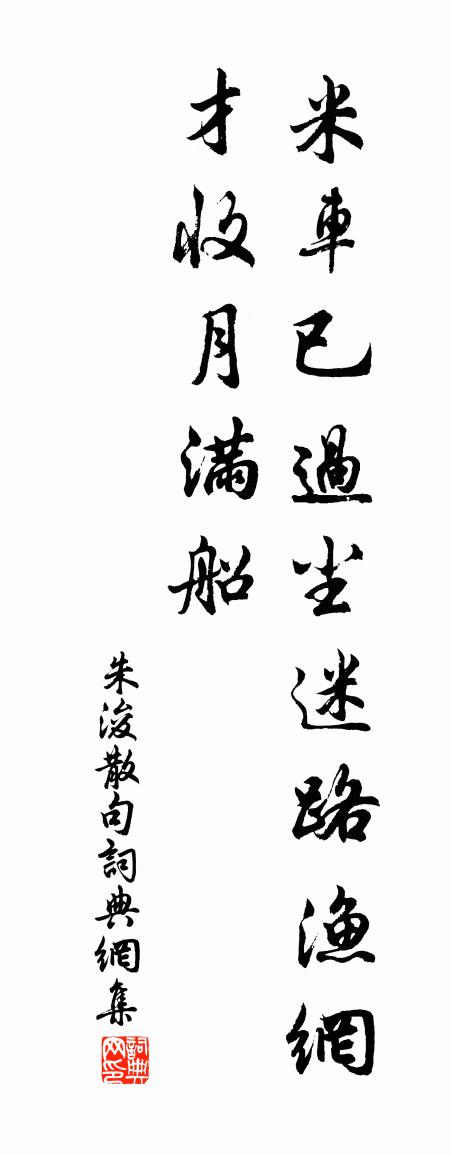 米車已過尘迷路漁網
才收月滿船
朱浚散句詞典網集
詞典网印